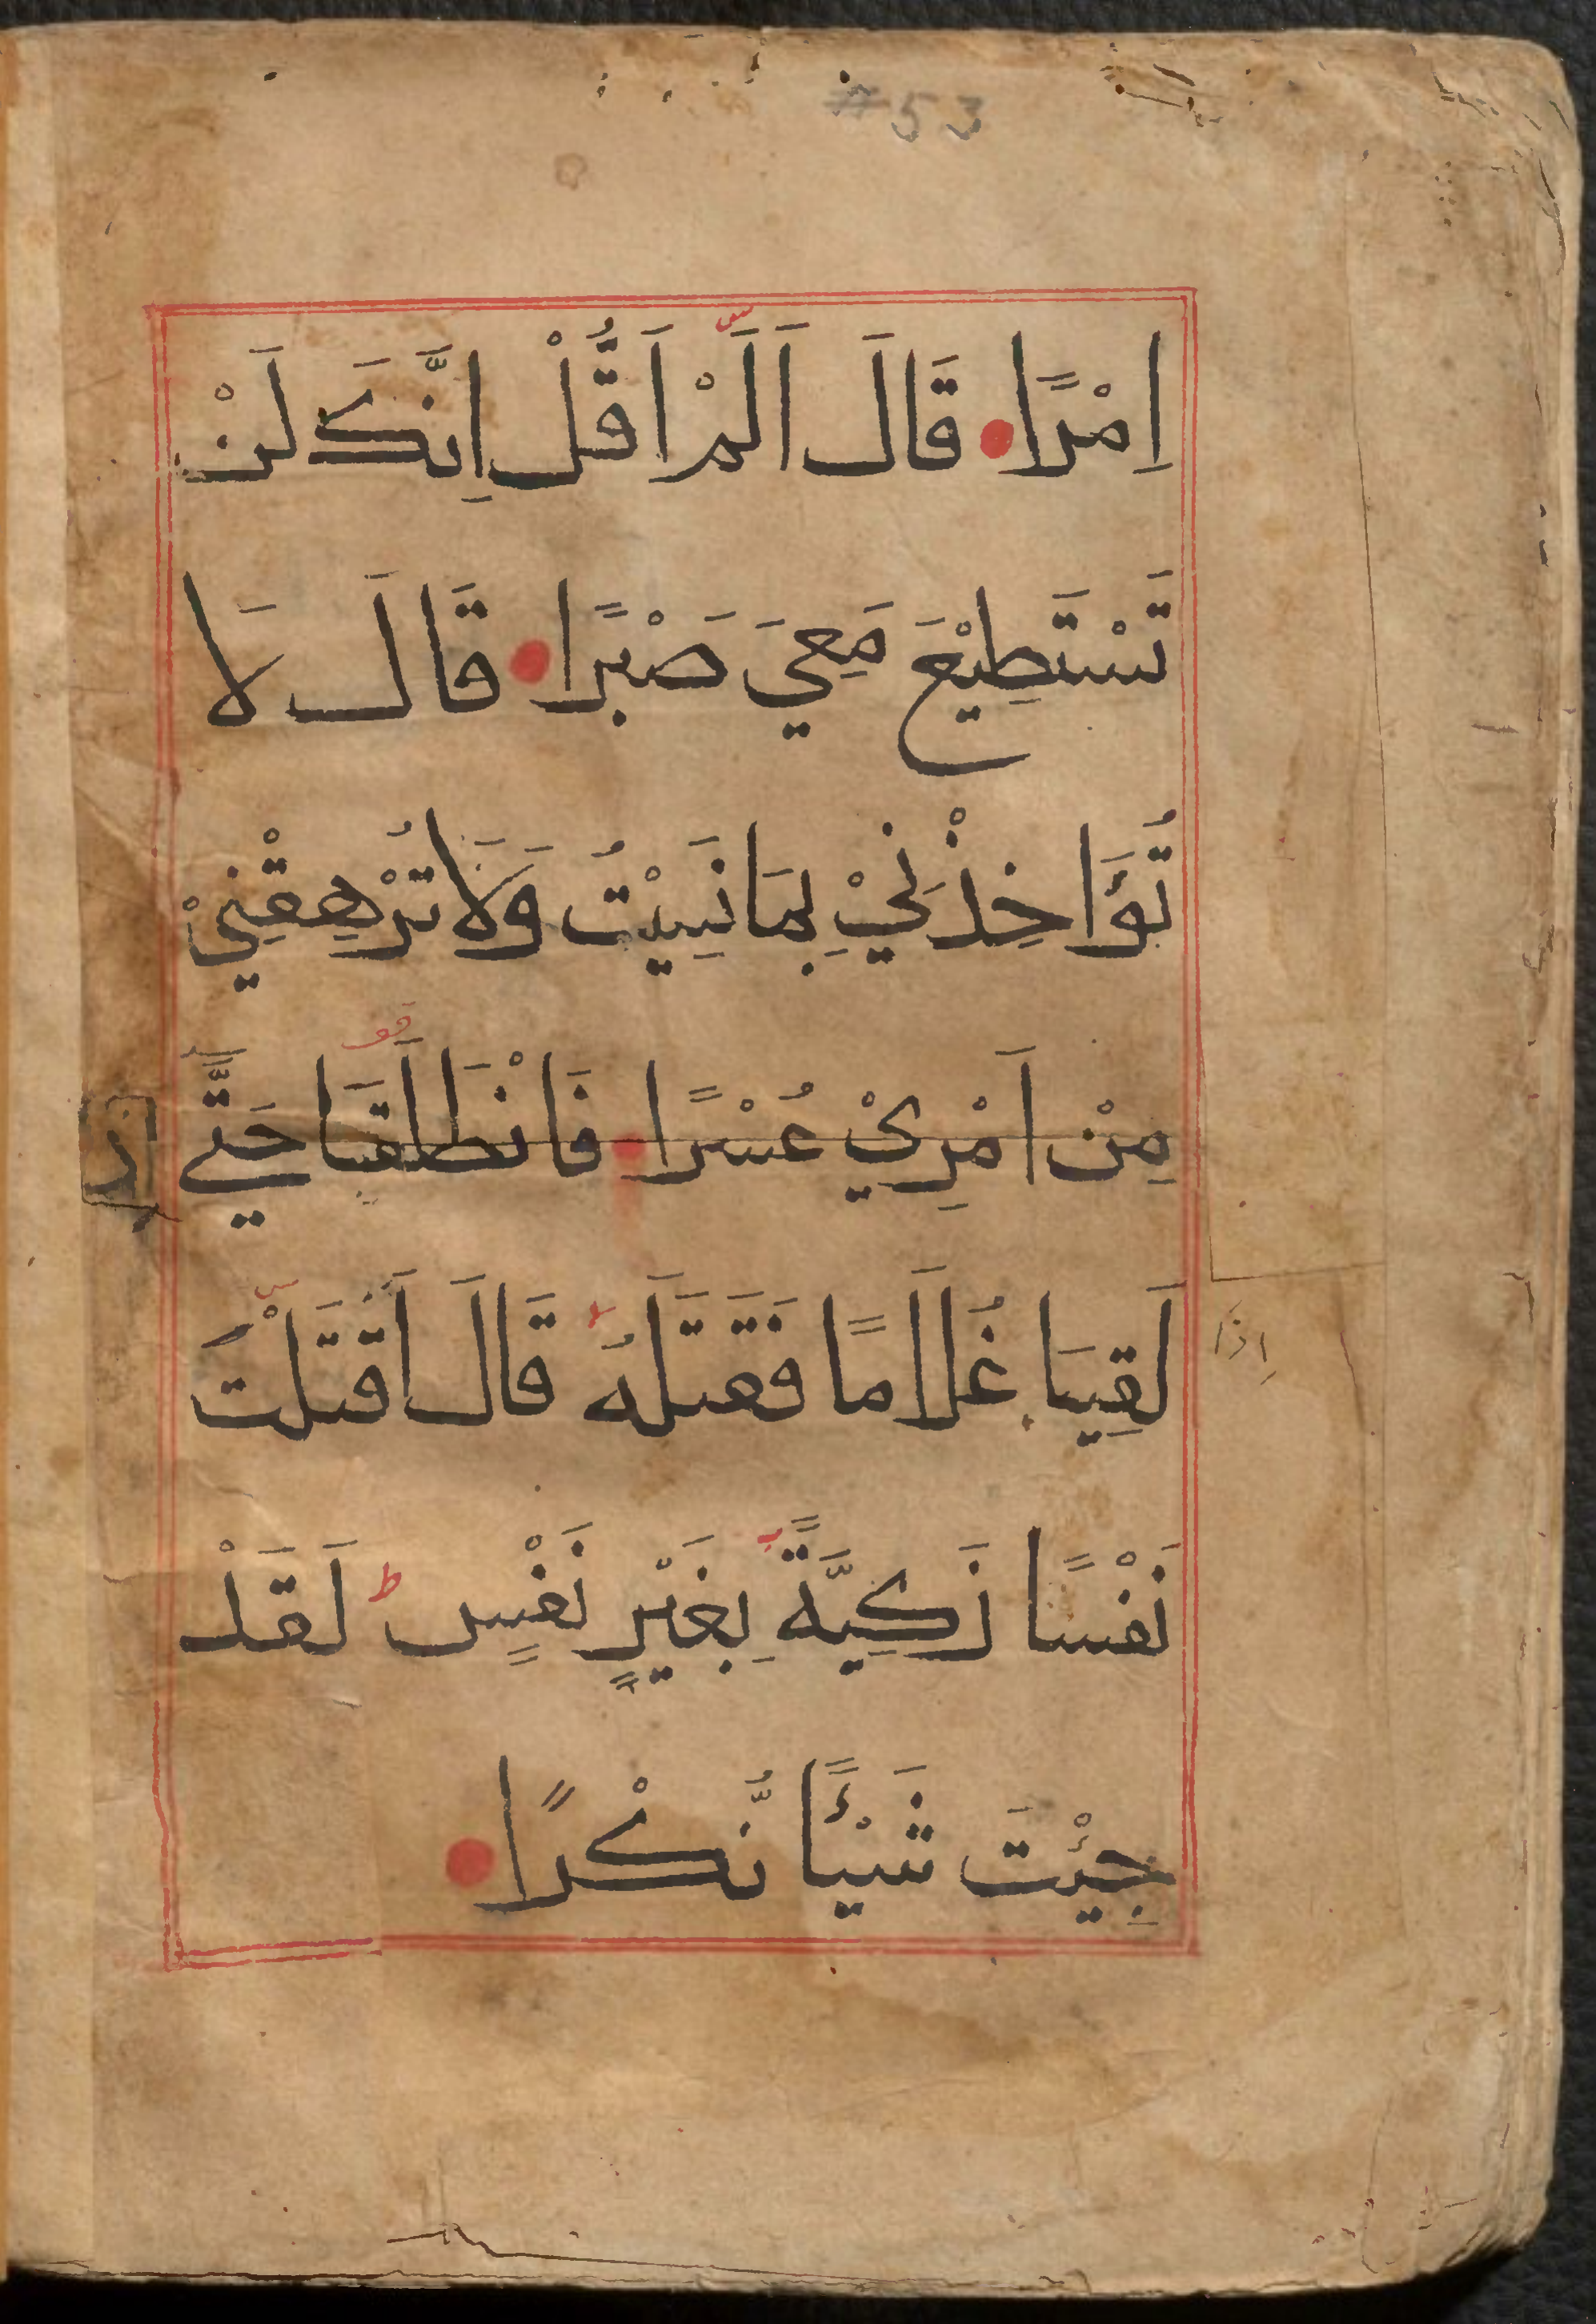 #53
اِمْرًا قَالَ اَلَمْ اَقُلْ اِنَّكَ لَنْ
تَسْتَطِيْعَ مَعِيَ صَبْرًا قَالَ لَا
تُؤَاخِذْنِيْ بِمَا نَسِيْتُ وَلَا تُرْهِقْنِيْ
مِنْ اَمْرِيْ عُسْرًا فَانْطَلَقَا حَتَّي
لَقِيَا غُلَامًا فَقَتَلَهُ قَالَ اَقَتَلْتَ
اِذَا
نَفْسًا زَكِيَّةً بِغَيْرِ نَفْسٍ ط لَقَدْ
جِئْتَ شَيْئًا نُّكْرًا